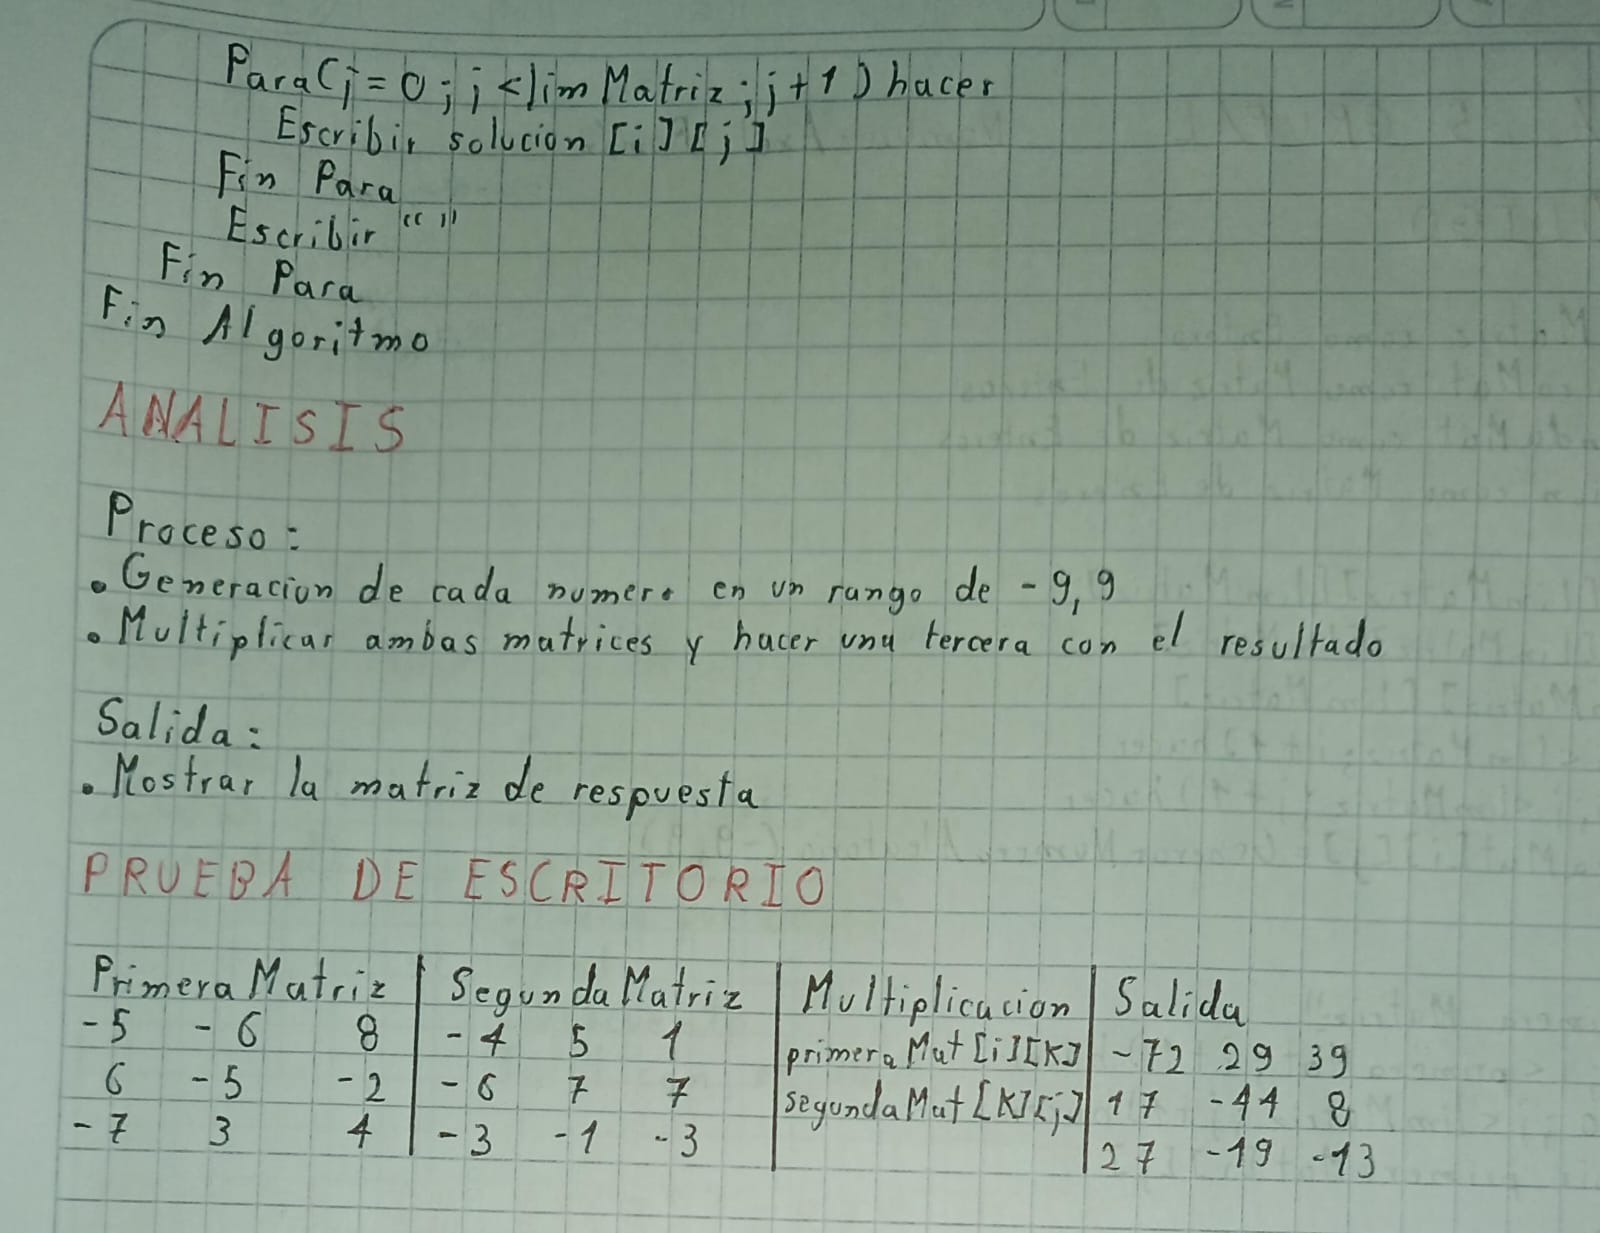 Para(j=0;j<limMatriz;j+1)hacer
Escribir solucion[i][j]
Fin Para
Escribir" "
Fin Para
Fin Algoritmo
ANALISIS
Proceso:
• Generacion de cada numero en un rango de -9,9
• Multiplicar ambas matrices y hacer una tercera con el resultado
Salida:
• Mostrar la matriz de respuesta
PRUEBA DE ESCRITORIO
Primera Matriz | Segunda Matriz | Multiplicacion | Salida
-5 -6 8 | -4 5 1 | primeraMat[i][K] | -72 29 39
6 -5 -2 | -6 7 7 | segundaMat[K][j] | 17 -44 8
-7 3 4 | -3 -1 -3 | 27 -19 -13